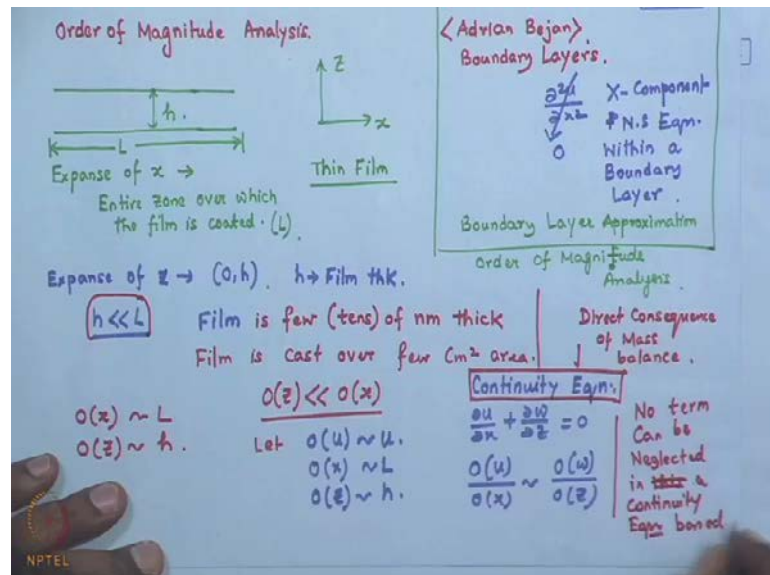 Order of Magnitude Analysis.
h.
L
z
x
Thin Film
Expanse of x →
Entire zone over which
the film is coated. (L)
<Adrian Bejan>
Boundary Layers.
∂²u/∂x² X-Component
0
N.S Eqn.
Within a
Boundary
Layer.
Boundary Layer Approximation
Order of Magnitude
Analysis.
Expanse of z → (0,h). h → Film thk.
h << L
Film is few (tens) of nm thick
Film is cast over few Cm² area.
Direct Consequence
of Mass
balance.
O(x) ~ L
O(z) ~ h.
O(z) << O(x)
Let O(u) ~ u.
O(x) ~ L
O(z) ~ h.
Continuity Eqn:
∂u/∂x + ∂w/∂z = 0
O(u)/O(x) ~ O(w)/O(z)
No term
Can be
Neglected
in this a
Continuity
Eqn based
NPTEL